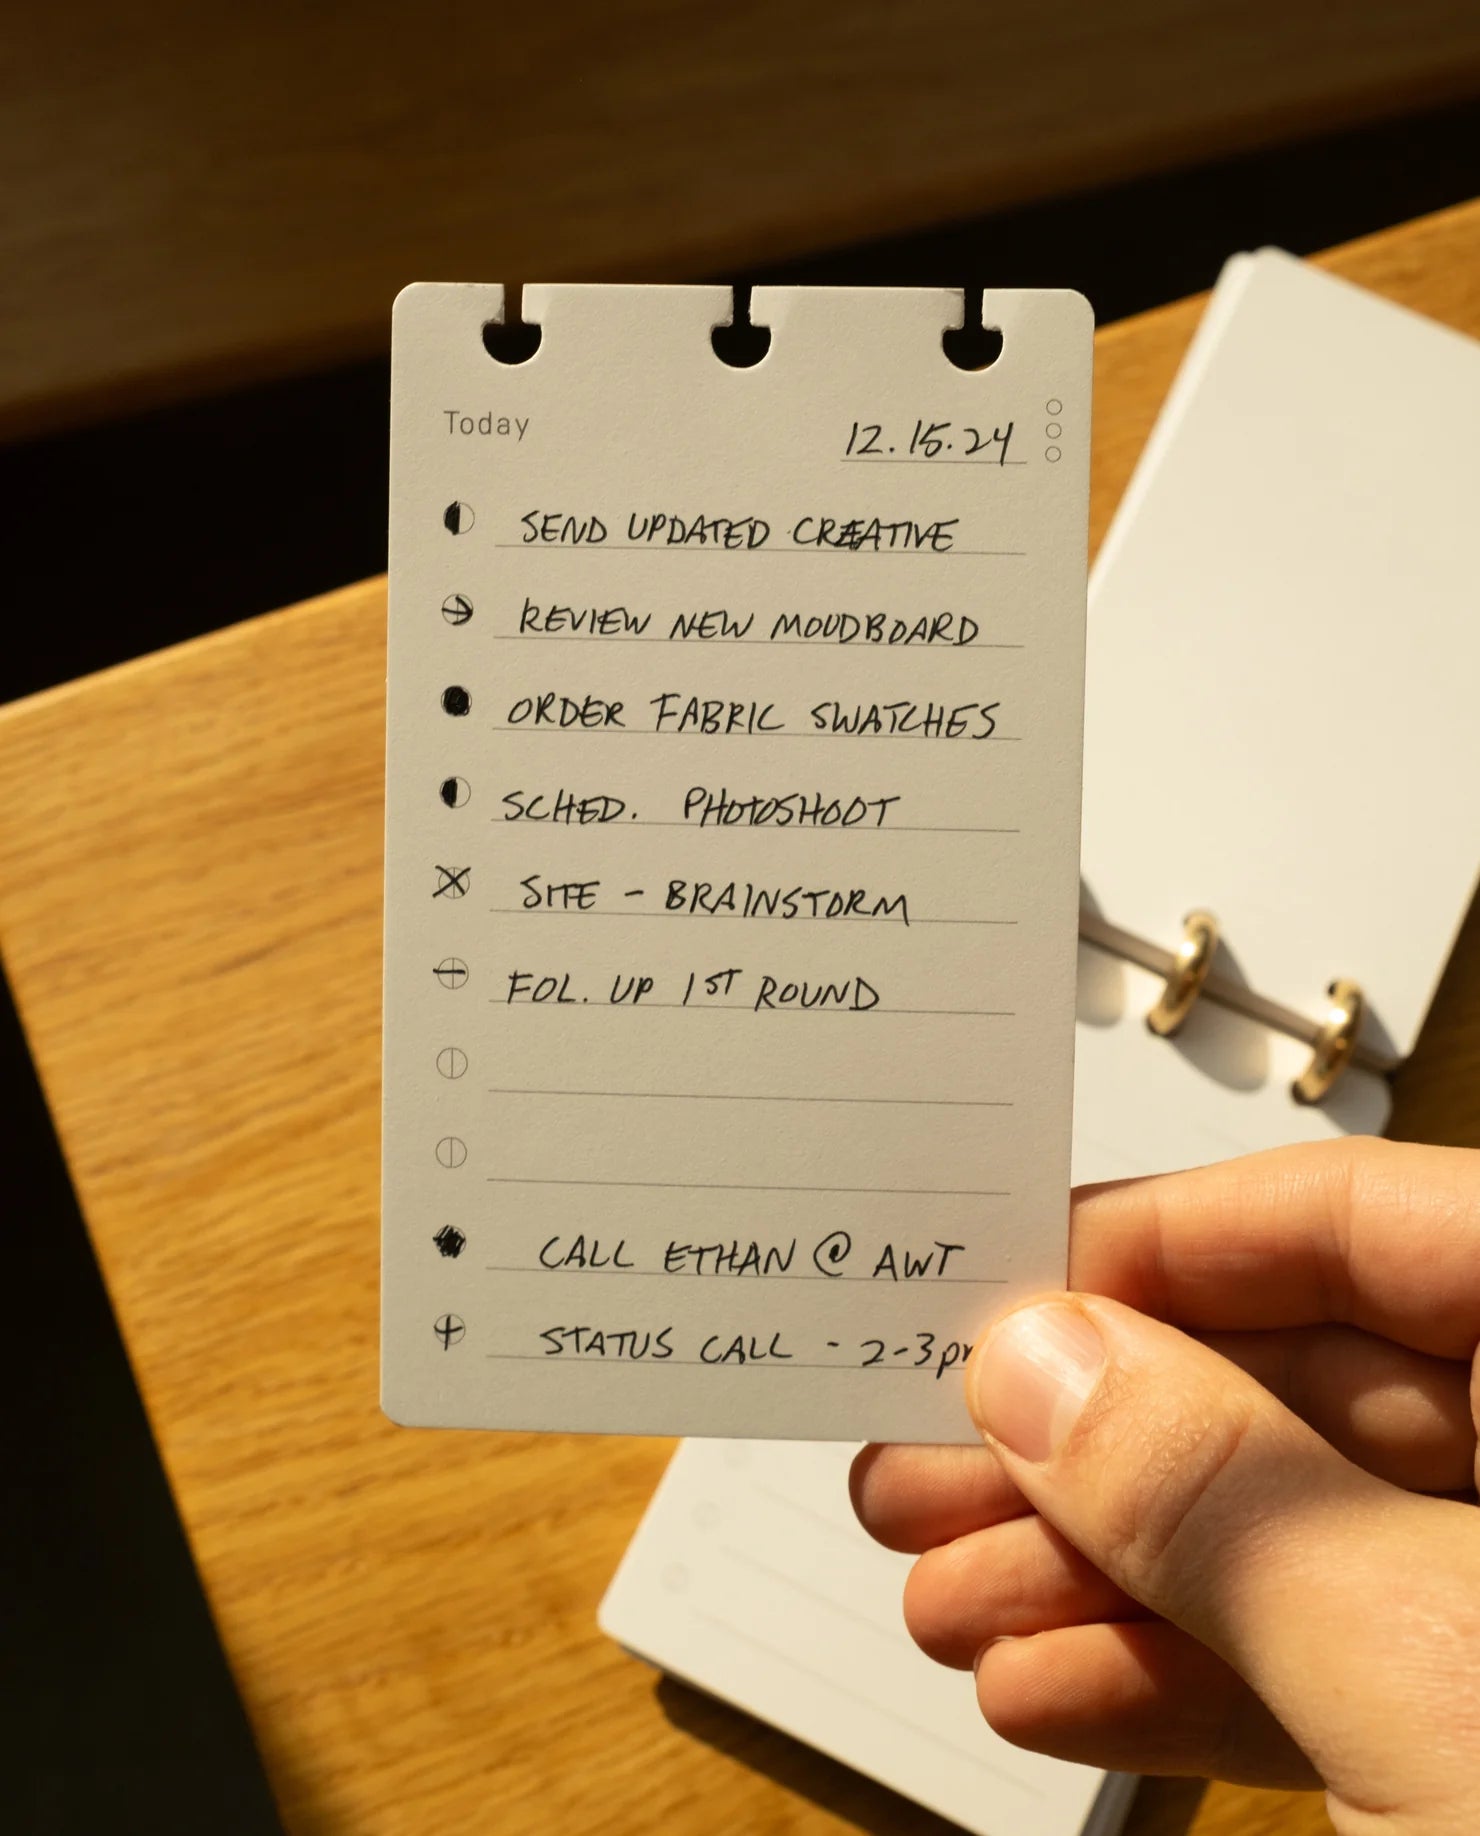 Today 12.15.24
SEND UPDATED CREATIVE
REVIEW NEW MOODBOARD
ORDER FABRIC SWATCHES
SCHED. PHOTOSHOOT
SITE - BRAINSTORM
FOL. UP 1ST ROUND
CALL ETHAN @ AWT
STATUS CALL - 2-3